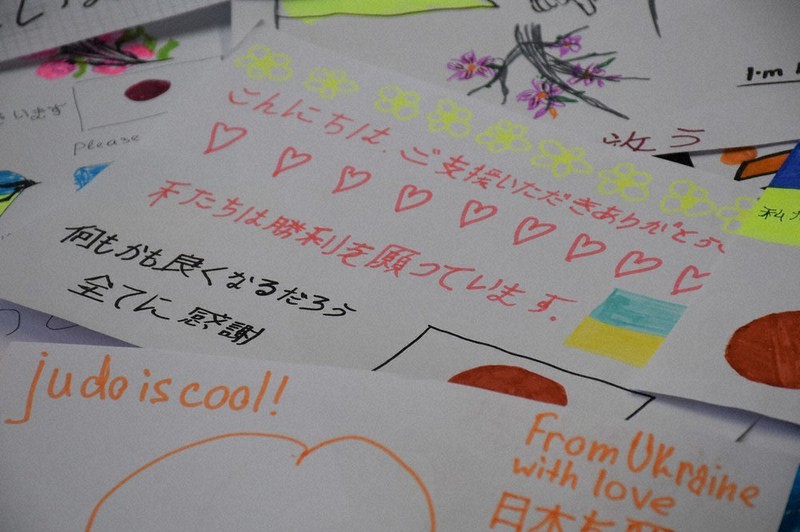 います
please
I'm
ごんにちは、ご支援いただきありがとう
私たちは勝利を願っています。
何もかも良くなるだろう
全てに感謝
judo is cool!
From Ukraine
with love
日本